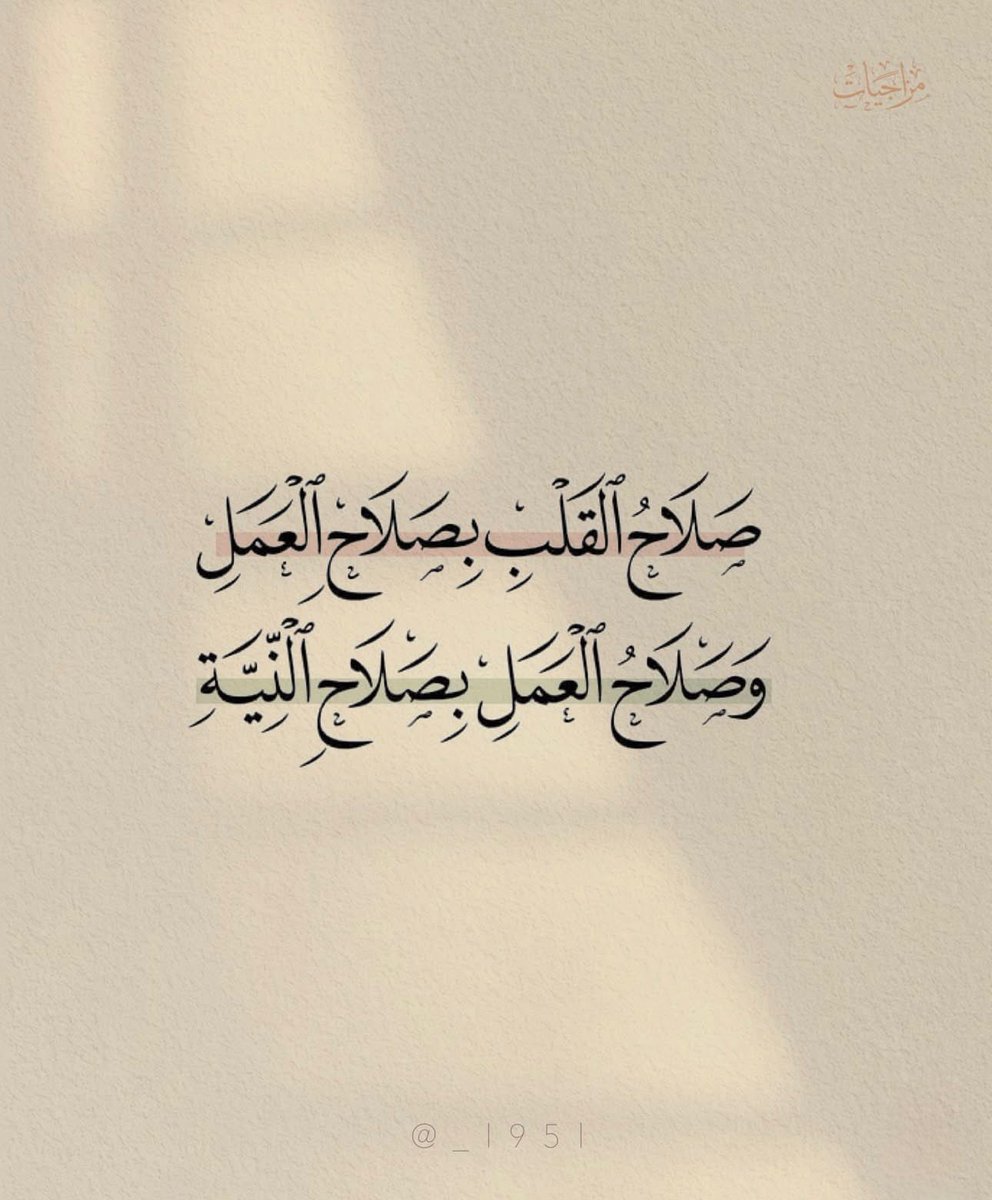 مزاجيات
صَلَاحُ ٱلْقَلْبِ بِصَلَاحِ ٱلْعَمَلِ
وَصَلَاحُ ٱلْعَمَلِ بِصَلَاحِ ٱلنِّيَّةِ
@_1951